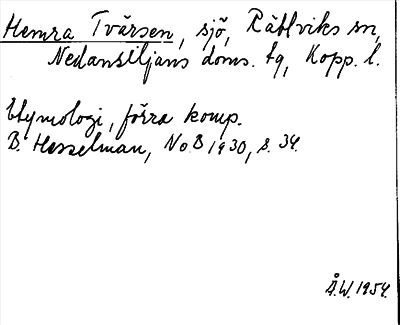 Hemra Tvärsen, sjö, Rättviks sn,
Nedansiljans doms. tg, Kopp. l.
Etymologi, förra komp.
B. Hesselman, NoB 1930, s. 34.
Å.W. 1954.